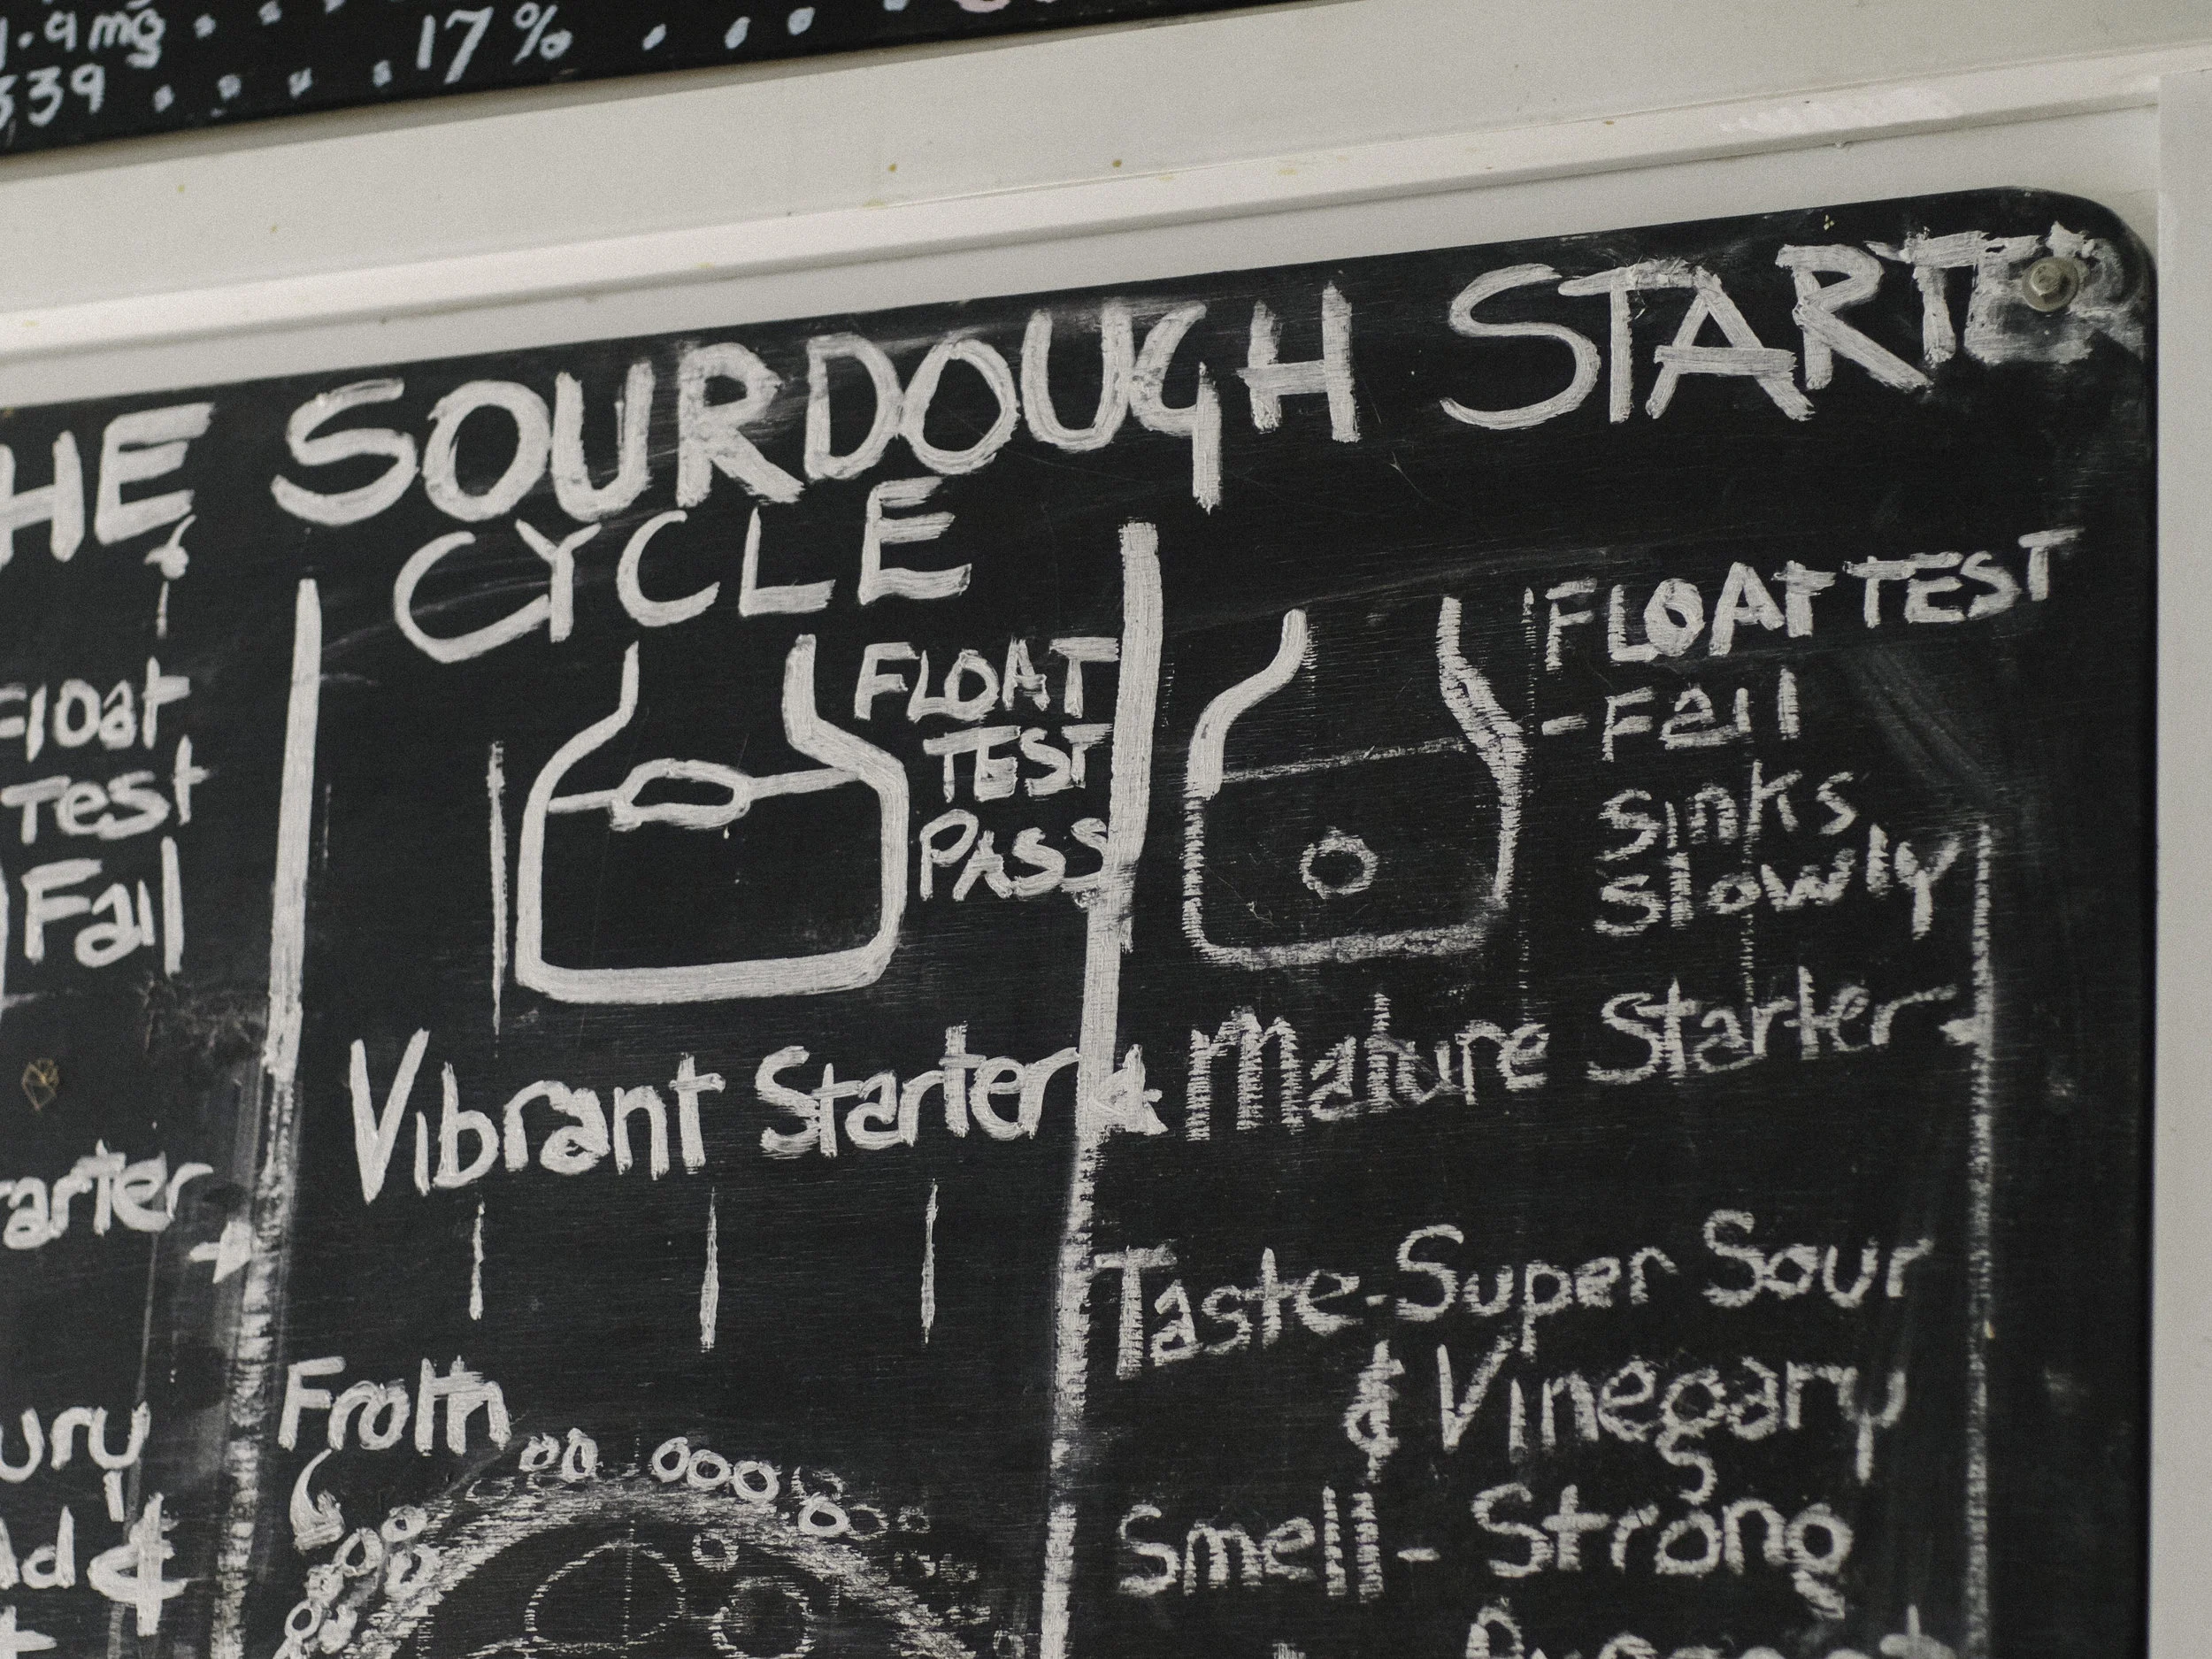 .9mg . . . .
339 . . . . 17% . . .
HE SOURDOUGH STARTER
CYCLE
Float
Test
Fail
FLOAT
TEST
PASS
FLOAT TEST
- Fail
Sinks
Slowly
arter
Vibrant Starter
& Mature Starter
Froth
Taste-Super Sour
& Vinegary
Smell- Strong
ury
d &